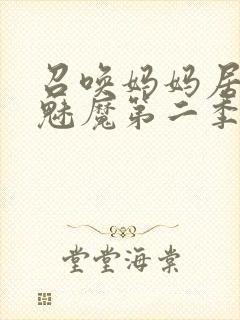 召唤妈妈居
魅魔第二季
堂堂海棠